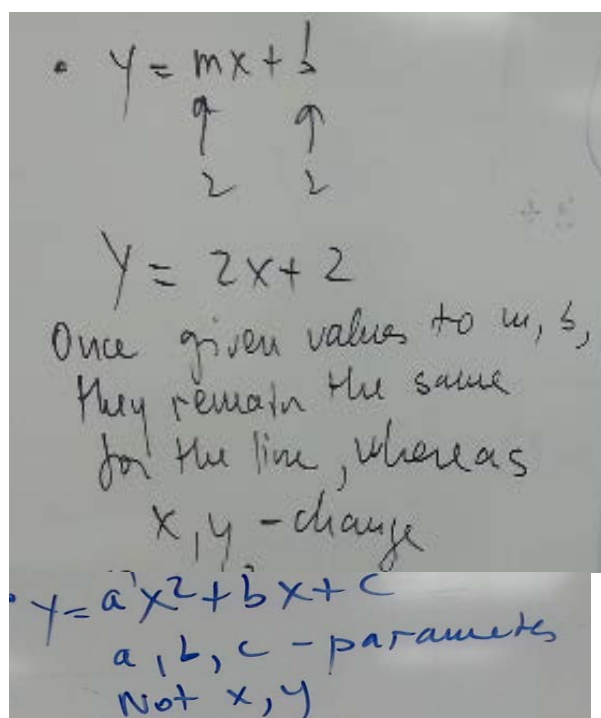 • y = mx + b
↑ ↑
2 2
y = 2x + 2
Once given values to m, b,
they remain the same
for the line, whereas
x, y - change
• y = ax² + bx + c
a, b, c - parameters
Not x, y